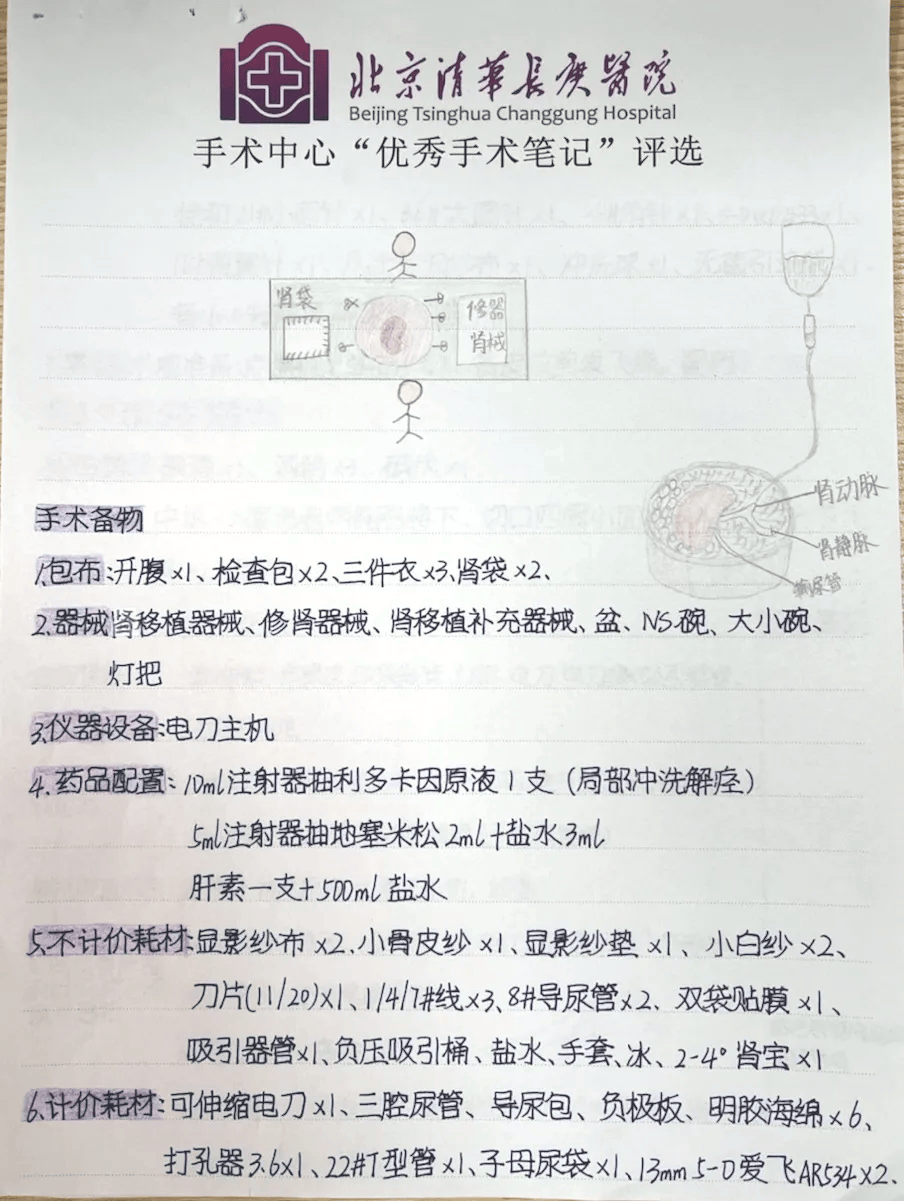 北京清華長庚醫院
Beijing Tsinghua Changgung Hospital
手术中心“优秀手术笔记”评选
肾袋
修器
肾械
肾动脉
肾静脉
输尿管
手术备物
1.包布:开腹x1、检查包x2、三件衣x3、肾袋x2、
2.器械 肾移植器械、修肾器械、肾移植补充器械、盆、NS碗、大小碗、
灯把
3.仪器设备:电刀主机
4.药品配置:10ml注射器抽利多卡因原液1支(局部冲洗解痉)
5ml注射器抽地塞米松2ml+盐水3ml
肝素一支+500ml盐水
5.不计价耗材:显影纱布x2、小骨皮纱x1、显影纱垫x1、小白纱x2、
刀片(11/20)x1、1/4/7#线x3、8#导尿管x2、双袋贴膜x1、
吸引器管x1、负压吸引桶、盐水、手套、冰、2-4°肾宝x1
6.计价耗材:可伸缩电刀x1、三腔尿管、导尿包、负极板、明胶海绵x6、
打孔器3.6x1、22#T型管x1、子母尿袋x1、13mm 5-0爱飞AR534x2、